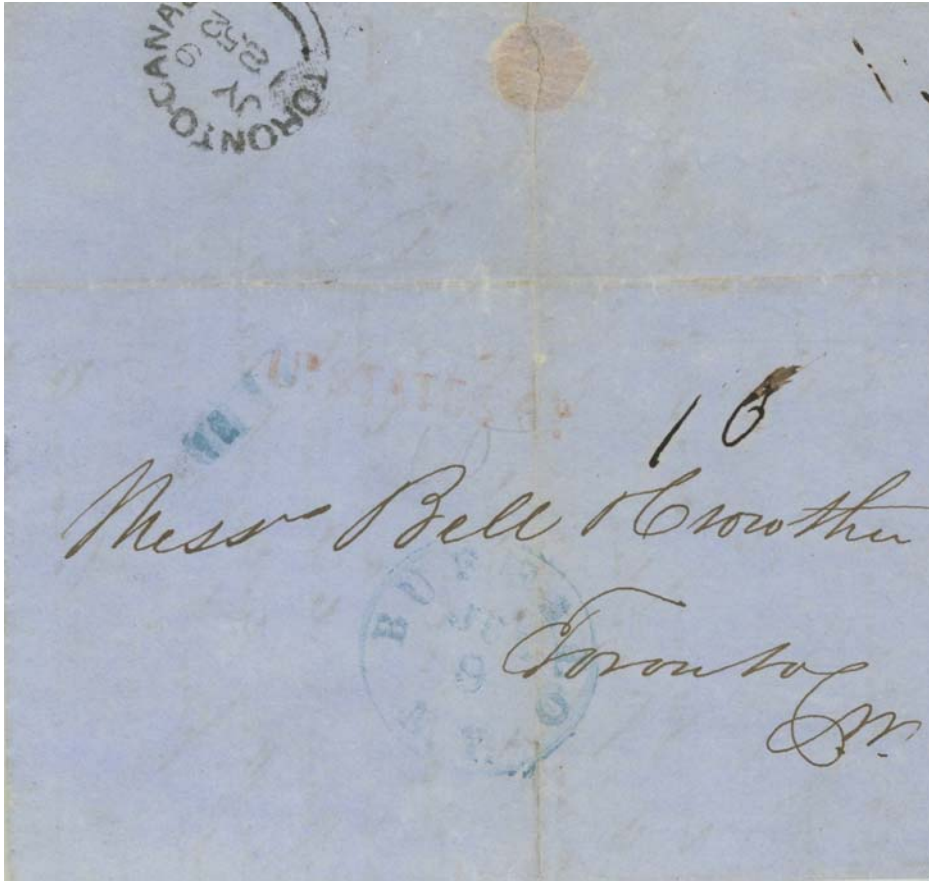 TORONTO·CANADA
JY
9
1852
10
Messrs Bell & Crowther
BUFFALO N.Y.
Toronto
C.W.